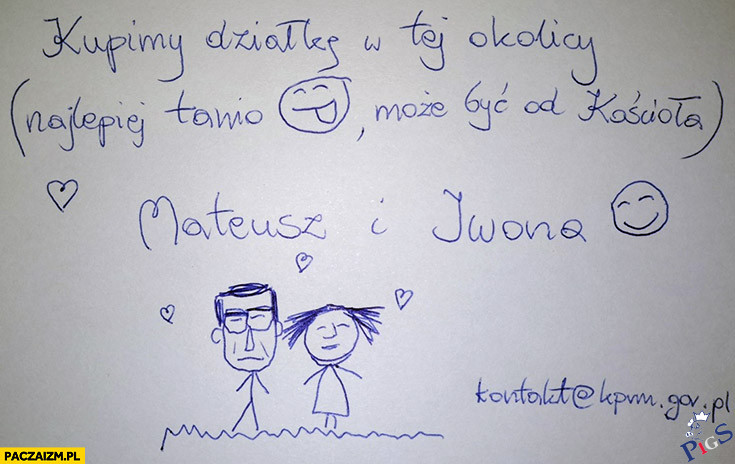 Kupimy działkę w tej okolicy
(najlepiej tanio , może być od Kościoła)
Mateusz i Iwona
kontakt@kprm.gov.pl
PIGS
PACZAIZM.PL